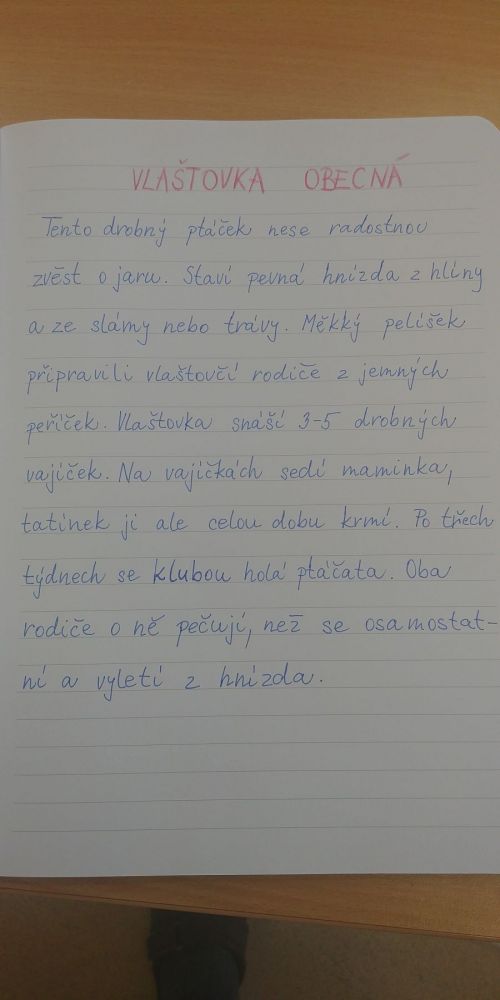 VLAŠTOVKA OBECNÁ
Tento drobný ptáček nese radostnou
zvěst o jaru. Staví pevná hnízda z hlíny
a ze slámy nebo trávy. Měkký pelíšek
připravili vlaštovčí rodiče z jemných
peříček. Vlaštovka snáší 3-5 drobných
vajíček. Na vajíčkách sedí maminka,
tatínek ji ale celou dobu krmí. Po třech
týdnech se klubou holá ptáčata. Oba
rodiče o ně pečují, než se osamostat-
ní a vyletí z hnízda.